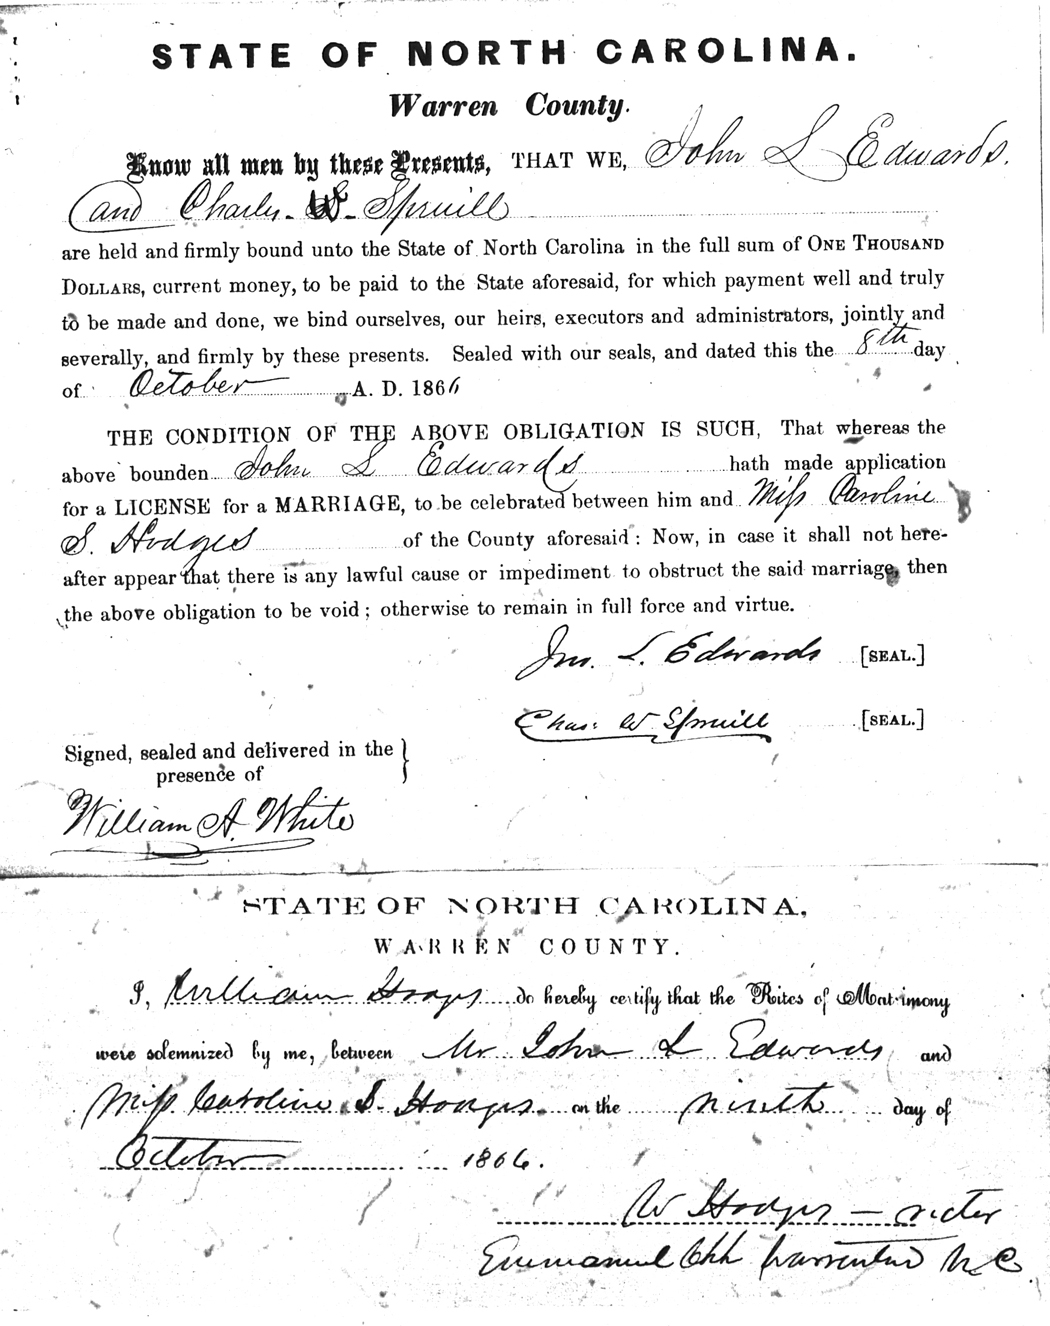 STATE OF NORTH CAROLINA.
Warren County.
Know all men by these Presents, THAT WE, John L Edwards.
and Charles W. Spruill
are held and firmly bound unto the State of North Carolina in the full sum of ONE THOUSAND
DOLLARS, current money, to be paid to the State aforesaid, for which payment well and truly
to be made and done, we bind ourselves, our heirs, executors and administrators, jointly and
severally, and firmly by these presents. Sealed with our seals, and dated this the 8th day
of October A. D. 1866
THE CONDITION OF THE ABOVE OBLIGATION IS SUCH, That whereas the
above bounden John L Edwards hath made application
for a LICENSE for a MARRIAGE, to be celebrated between him and Miss Caroline
S. Hodges of the County aforesaid: Now, in case it shall not here-
after appear that there is any lawful cause or impediment to obstruct the said marriage, then
the above obligation to be void; otherwise to remain in full force and virtue.
Jno. L. Edwards [SEAL.]
Chas: W Spruill [SEAL.]
Signed, sealed and delivered in the
presence of
William A. White
STATE OF NORTH CAROLINA,
WARREN COUNTY.
I, William Hodges do hereby certify that the Rites of Matrimony
were solemnized by me, between Mr John L Edwards and
Miss Caroline S. Hodges on the ninth day of
October 1866.
W Hodges — rector
Emmanuel Chh Warrenton N. C.